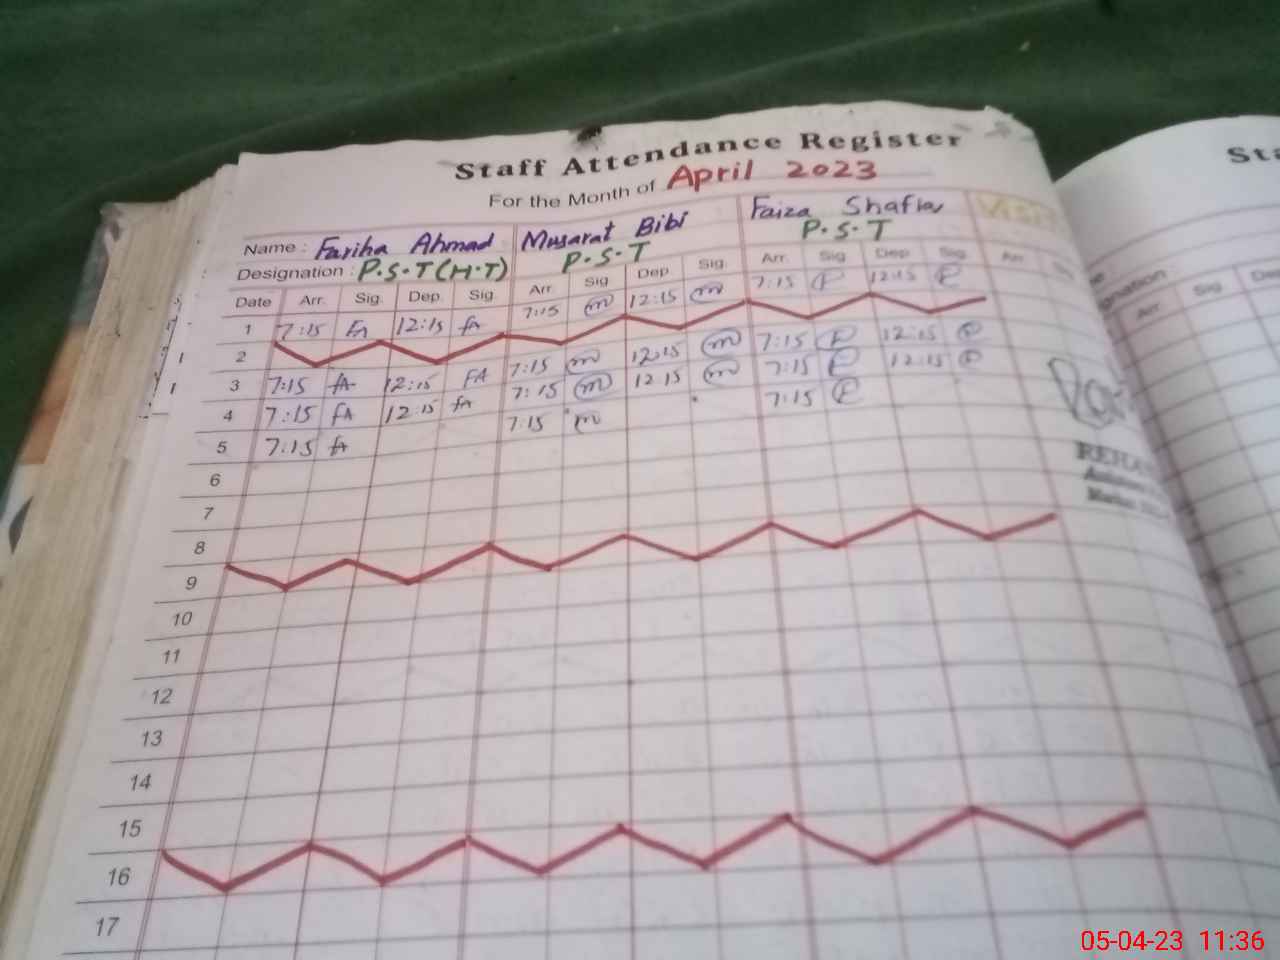 Staff Attendance Register
For the Month of April 2023
Name : Fariha Ahmad Musarat Bibi Faiza Shafiq
Designation : P.S.T (H.T) P.S.T P.S.T
Date Arr. Sig. Dep. Sig. Arr. Sig Dep. Sig. Arr. Sig Dep. Sig.
1 7:15 FA 12:15 fA 7:15 m 12:15 m 7:15 F 12:15 F
2
3 7:15 fA 12:15 FA 7:15 m 12:15 m 7:15 F 12:15 F
4 7:15 fA 12 15 fA 7:15 m 12 15 m 7:15 F 12:15 F
5 7:15 fA 7:15 m 7:15 F
6
7
8
9
10
11
12
13
14
15
16
17
Arr. Sig
05-04-23 11:36